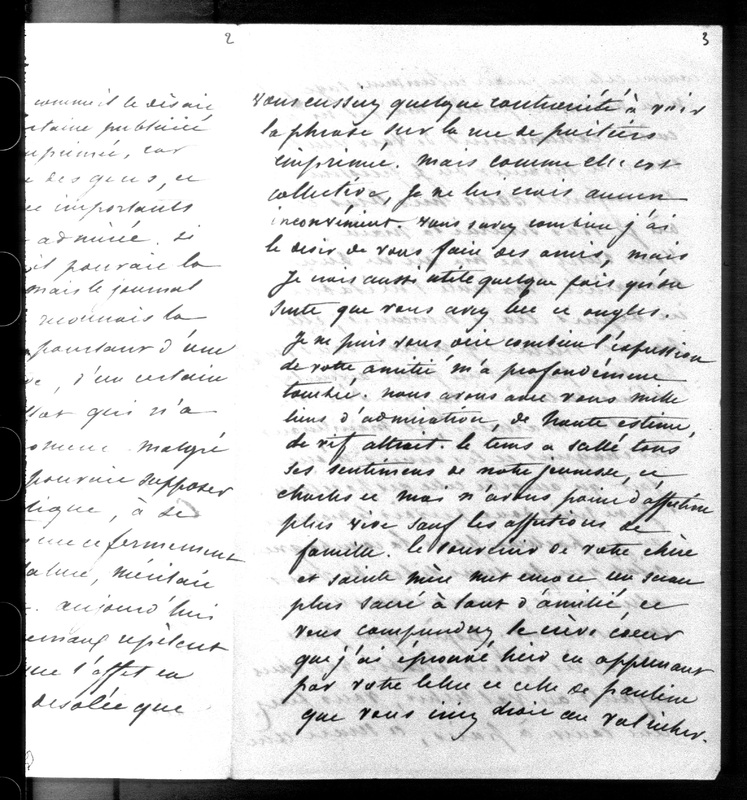 2
comme il le désire
certaine publicité
imprimée, car
des gens, et
importants
admirée. si
pouvait la
mais le journal
reconnais la
pourtant d'une
d'un certain
état qui n'a
malgré
pouvoir supposer
à se
fermement
méritait
aujourd'hui
répètent
que l'effet en
désolée que
3
vous eussiez quelque contrariété à voir
la phrase sur la rue de poitiers
imprimée. mais comme elle est
collective, je ne lui crois aucun
inconvénient vous savez combien j'ai
le désir de vous faire des amis, mais
je crois aussi utile quelque fois qu'on
sente que vous avez bec et ongles.
Je ne puis vous dire combien l'expression
de votre amitié m'a profondément
touchée. nous avons avec vous mille
liens d'admiration, de haute estime,
de vif attrait. le tems a scellé tous
ces sentimens de notre jeunesse, et
charles et moi n'avons point d'affection
plus vive sauf les affections de
famille. le souvenir de votre chère
et sainte mère met encore un sceau
plus sacré à tant d'amitié, et
vous comprendrez le crève coeur
que j'ai éprouvé hier en apprenant
par votre lettre et celle de pauline
que vous iriez droit au val richer.